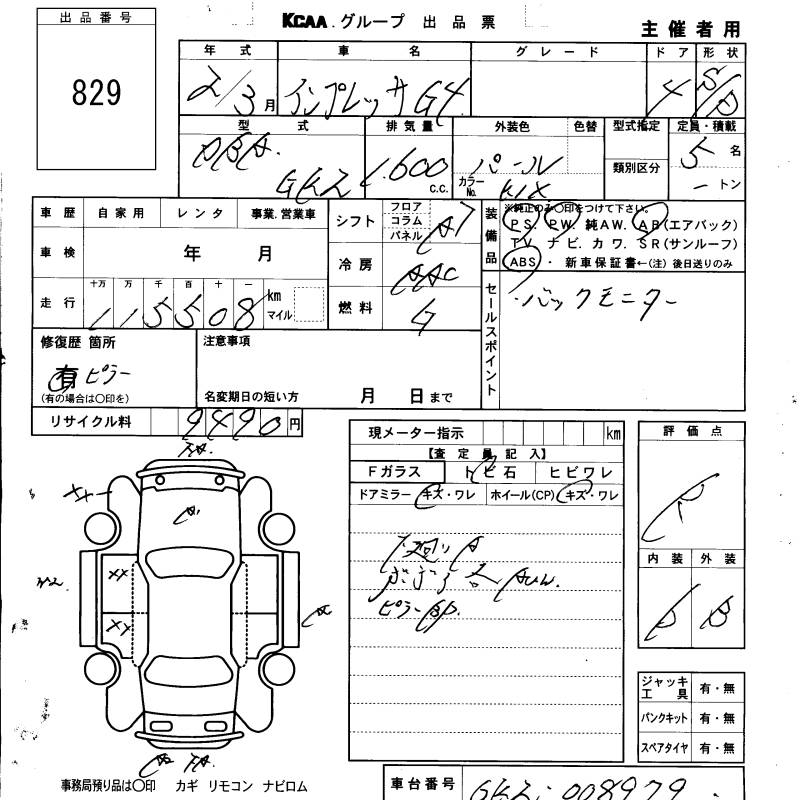 出品番号
829
KCAA.グループ 出品票
主催者用
年式 車名 グレード ドア 形状
2/3月 インプレッサG4 4 S/D
型式 排気量 外装色 色替 型式指定 定員・積載
DBA. GK2 1,600 c.c. パール カラーNo. K1X 類別区分 5名 ートン
車歴 自家用 レンタ 事業.営業車
シフト フロア コラム パネル A7
装備品 ※純正のみ〇印をつけて下さい。
PS. PW. 純AW. AB(エアバック)
TV. ナビ. カワ. SR(サンルーフ)
ABS ・ 新車保証書←(注) 後日送りのみ
車検 年 月
冷房 AAC
走行 十万 万 千 百 十 一
115508 km マイル
燃料 G
セールスポイント
・バックモニター
修復歴 箇所
有 ピラー
(有の場合は〇印を)
注意事項
名変期日の短い方 月 日まで
リサイクル料 9490円
現メーター指示 km
【査定員記入】
Fガラス トビ石 ヒビワレ
ドアミラー キズ・ワレ ホイール(CP) キズ・ワレ
評価点
R
内装 外装
D B
下廻りA
ピラーBP.
XX
XY
A
ジャッキ工具 有・無
パンクキット 有・無
スペアタイヤ 有・無
事務局預り品は〇印 カギ リモコン ナビロム
車台番号 GK2-008979